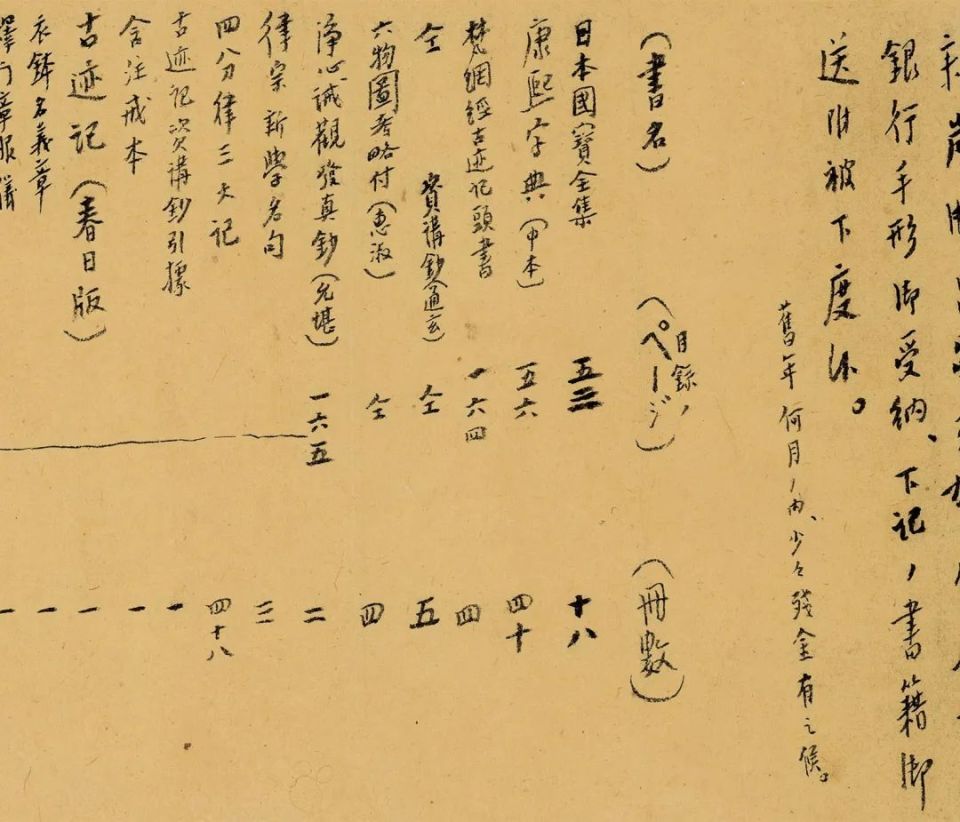 銀行手形御受納、下記ノ書籍御
送附被下度候。
舊年何月ノ内、少々殘金有之候。
(書名) 目錄ノ(ページ) (冊數)
日本國寶全集 五三 十八
康熙字典(中本) 五六 四十
梵網經古迹記頭書 一六四 四
仝 資講鈔(通玄) 仝 五
六物圖考略付(惠淑) 仝 四
淨心誡觀發真鈔(允堪) 一六五 二
律宗新學名句 三
四分律三大記 四十八
古迹記次講鈔引據 一
含注戒本 一
古迹記(春日版) 一
衣鉢名義章 一
釋門章服儀 一